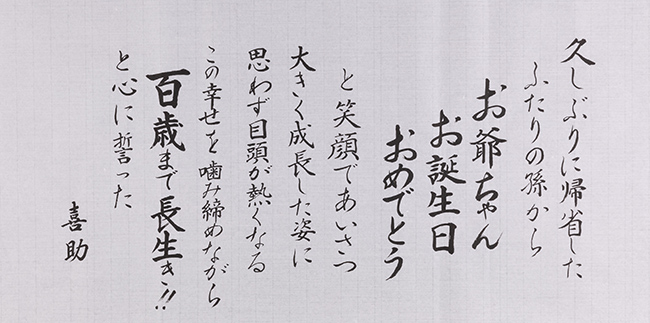 久しぶりに帰省した
ふたりの孫から
お爺ちゃん
お誕生日
おめでとう
と笑顔であいさつ
大きく成長した姿に
思わず目頭が熱くなる
この幸せを噛み締めながら
百歳まで長生き!!
と心に誓った
喜助